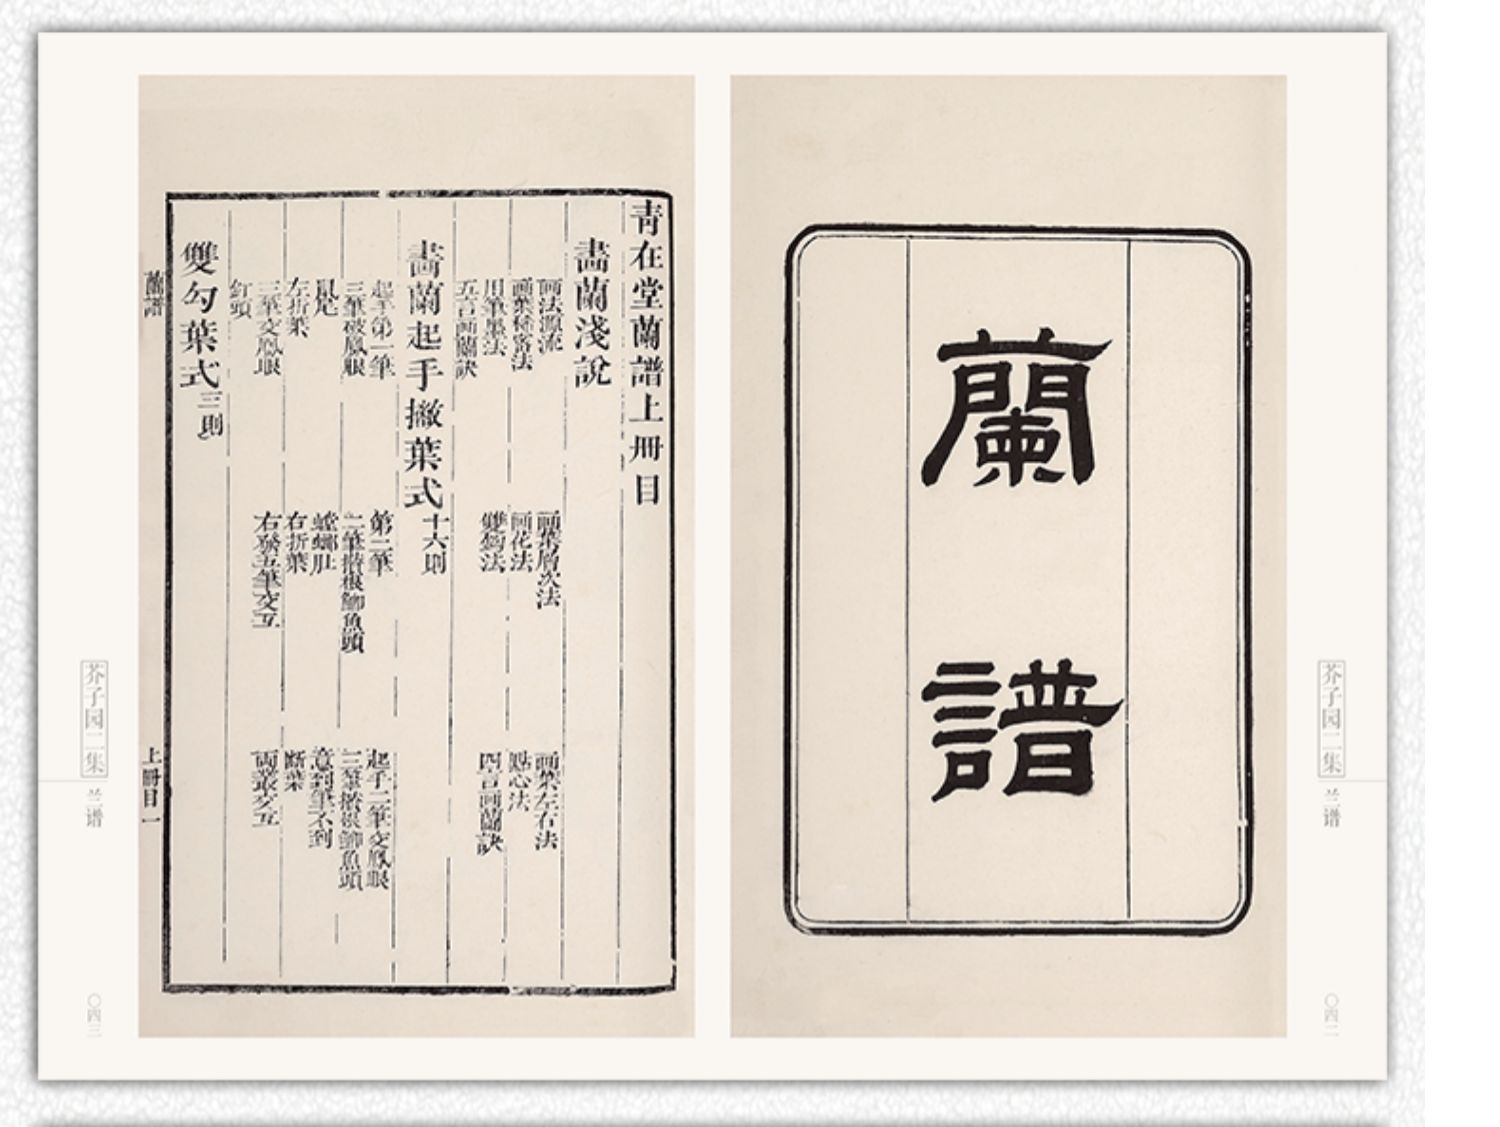 蘭譜
芥子园二集
兰谱
〇四二
青在堂蘭譜上冊目
畵蘭淺說
画法源流
画葉層次法
画葉左右法
画葉稀密法
画花法
點心法
用筆墨法
雙鈎法
四言画蘭訣
五言画蘭訣
畵蘭起手撇葉式十六則
起手第一筆
第二筆
起手二筆交鳳眼
三筆破鳳眼
二筆擠根鯽魚頭
三筆擠根鯽魚頭
鼠尾
螳螂肚
意到筆不到
左折葉
右折葉
斷葉
三筆交鳳眼
右發五筆交互
両叢交互
釘頭
雙勾葉式三則
蘭譜
上冊目一
芥子园二集
兰谱
〇四三